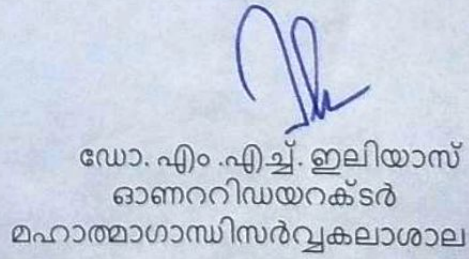 ഡോ. എം .എച്ച്. ഇലിയാസ്
ഓണററിഡയറക്ടർ
മഹാത്മാഗാന്ധിസർവ്വകലാശാല